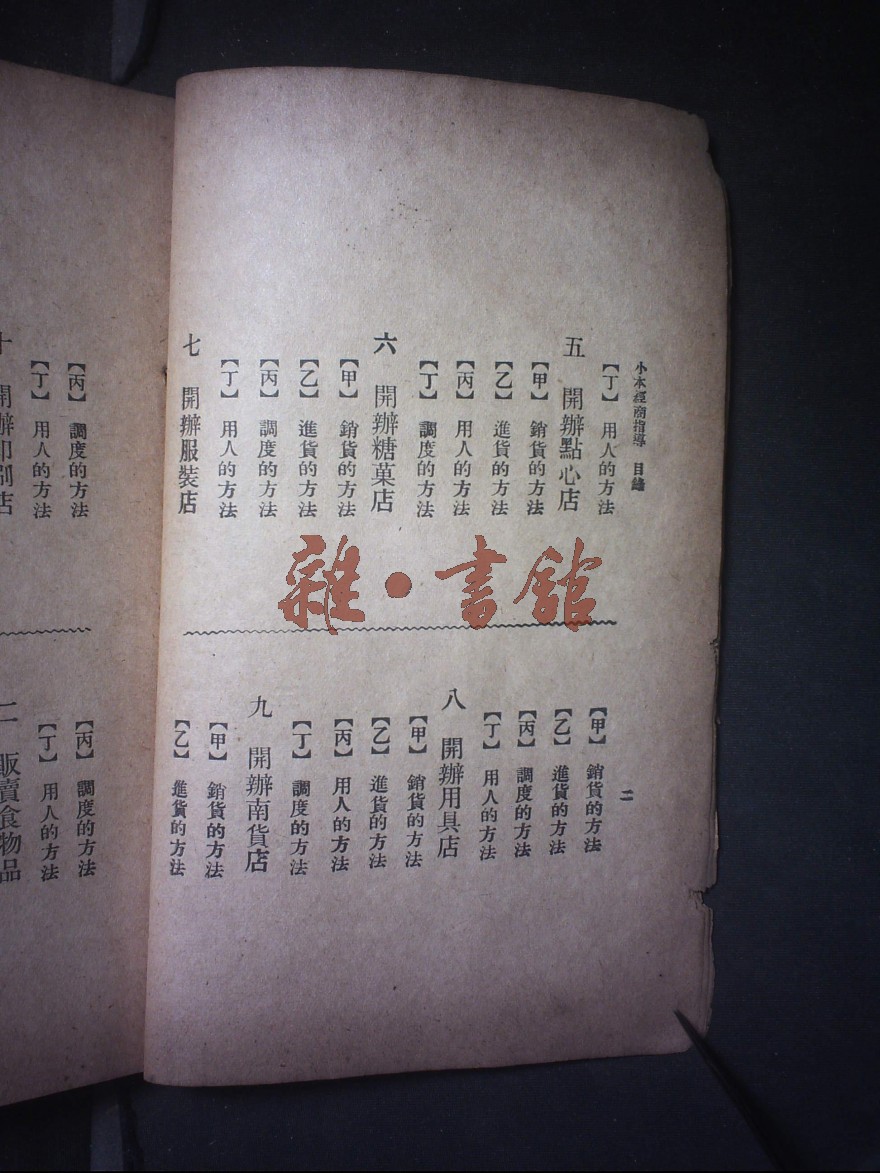 小本經商指導 目錄
【丁】 用人的方法
五 開辦點心店
【甲】 銷貨的方法
【乙】 進貨的方法
【丙】 用人的方法
【丁】 調度的方法
六 開辦糖菓店
【甲】 銷貨的方法
【乙】 進貨的方法
【丙】 調度的方法
【丁】 用人的方法
七 開辦服裝店
二
【甲】 銷貨的方法
【乙】 進貨的方法
【丙】 調度的方法
【丁】 用人的方法
八 開辦用具店
【甲】 銷貨的方法
【乙】 進貨的方法
【丙】 用人的方法
【丁】 調度的方法
九 開辦南貨店
【甲】 銷貨的方法
【乙】 進貨的方法
【丙】 調度的方法
【丁】 用人的方法
十 開辦印刷店
【丙】 調度的方法
【丁】 用人的方法
二 販賣食物品
雜·書館